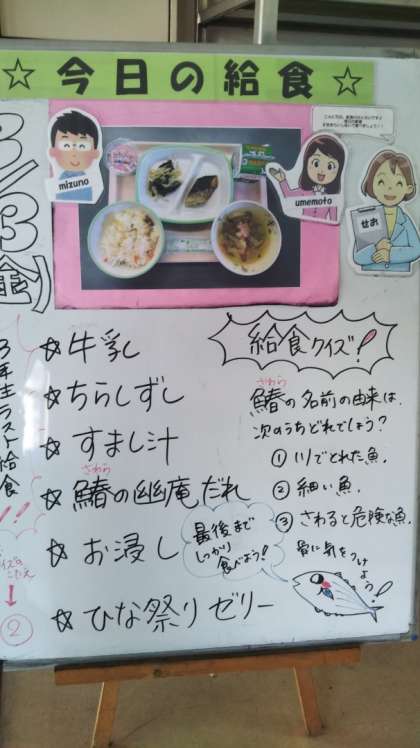 ☆今日の給食☆
3/3(金)
mizuno
umemoto
せお
3年生ラスト給食!!
☆牛乳
☆ちらしずし
☆すまし汁
さわら
☆鰆の幽庵だれ
☆お浸し
☆ひな祭りゼリー
最後まで
しっかり
食べよう!
給食クイズ!
さわら
鰆の名前の由来は、
次のうちどれでしょう?
① 川でとれた魚。
② 細い魚。
③ さわると危険な魚。
骨に気をつけよう!
クイズの
こたえ
↓
②